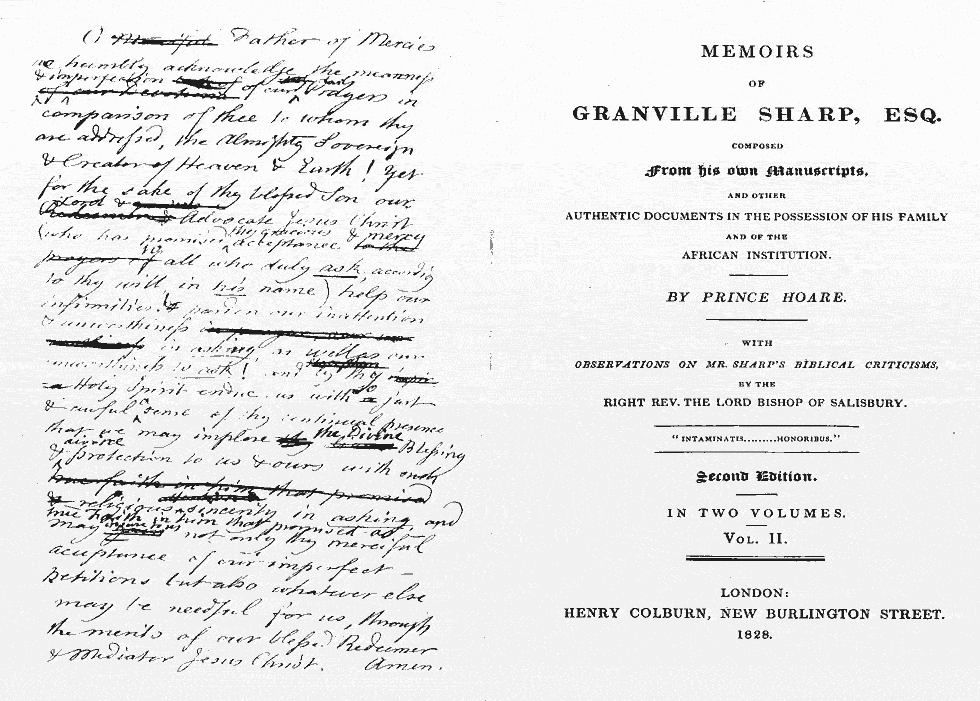 O Father of Mercies
we humbly acknowledge the meanness
& imperfection of our Prayers in
comparison of thee to whom they
are addressed, the Almighty Sovereign
& Creator of Heaven & Earth! Yet
for the sake of thy blessed Son our
Lord & Advocate Jesus Christ
(who has promised thy gracious acceptance & mercy
to all who duly ask, according
to thy will, in his name) help our
infirmities! & pardon our inattention
& unworthiness
in asking as well as our
unworthiness to ask! and by thy
Holy Spirit endue us with so just
& awful a sense of thy continual presence
that we may implore the Divine Blessing
& protection to us & ours with such
religious sincerity in asking, and
true faith in him that promised as
may not only thy merciful
acceptance of our imperfect
Petitions but also whatever else
may be needful for us, through
the merits of our blessed Redeemer
& Mediator Jesus Christ. Amen.
MEMOIRS
OF
GRANVILLE SHARP, ESQ.
COMPOSED
From his own Manuscripts,
AND OTHER
AUTHENTIC DOCUMENTS IN THE POSSESSION OF HIS FAMILY
AND OF THE
AFRICAN INSTITUTION.
BY PRINCE HOARE.
WITH
OBSERVATIONS ON MR. SHARP'S BIBLICAL CRITICISMS,
BY THE
RIGHT REV. THE LORD BISHOP OF SALISBURY.
"INTAMINATIS.........HONORIBUS."
Second Edition.
IN TWO VOLUMES.
VOL. II.
LONDON:
HENRY COLBURN, NEW BURLINGTON STREET.
1828.